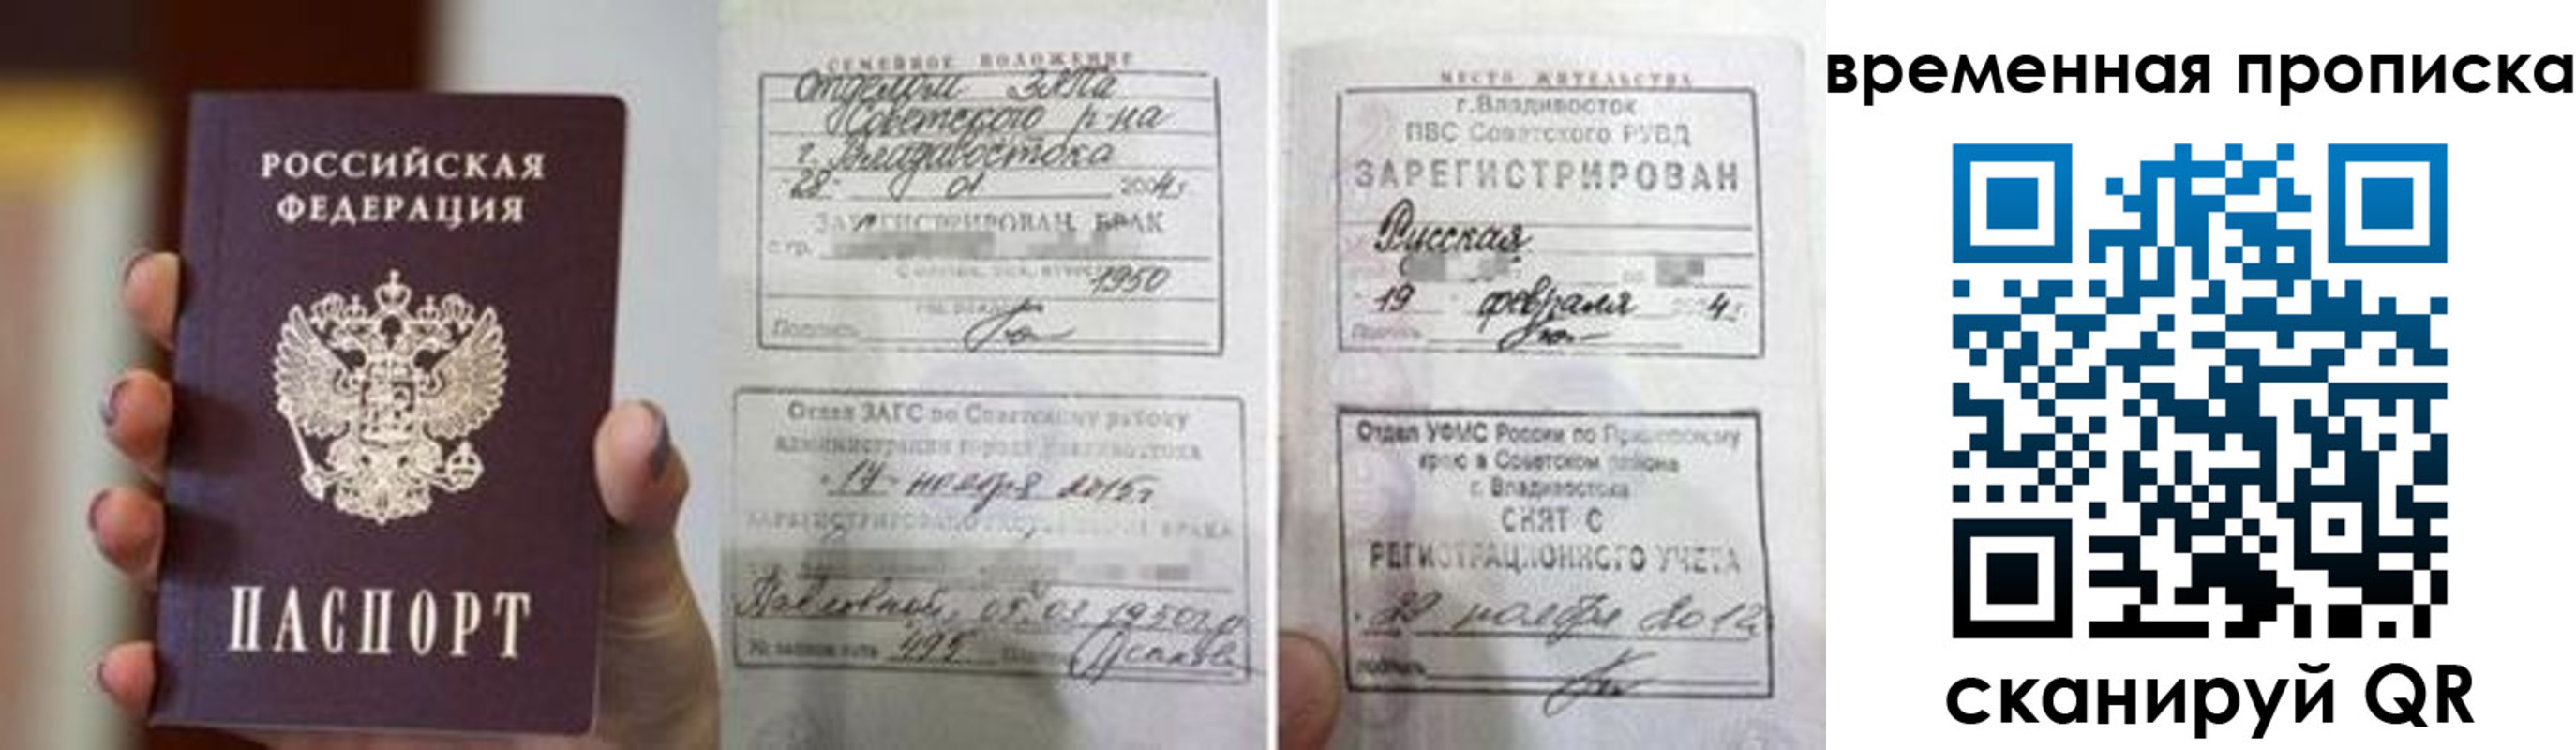 РОССИЙСКАЯ
ФЕДЕРАЦИЯ
ПАСПОРТ
СЕМЕЙНОЕ ПОЛОЖЕНИЕ
Отделом ЗАГСа
Советского р-на
г. Владивостока
"28" 01 2004г.
ЗАРЕГИСТРИРОВАН БРАК
с гр.
1950
Подпись
Отдел ЗАГС по Советскому району
администрации города Владивостока
"17" ноября 2015г
БРАКА
Павловной, 05.03.1950г.р
№ записи акта 495
МЕСТО ЖИТЕЛЬСТВА
г.Владивосток
ПВС Советского РУВД
ЗАРЕГИСТРИРОВАН
Русская
19 февраля 4г.
Подпись
Отдел УФМС России по Приморскому
краю в Советском районе
г. Владивостока
СНЯТ С
РЕГИСТРАЦИОННОГО УЧЕТА
ноября 2012
подпись
временная прописка
сканируй QR